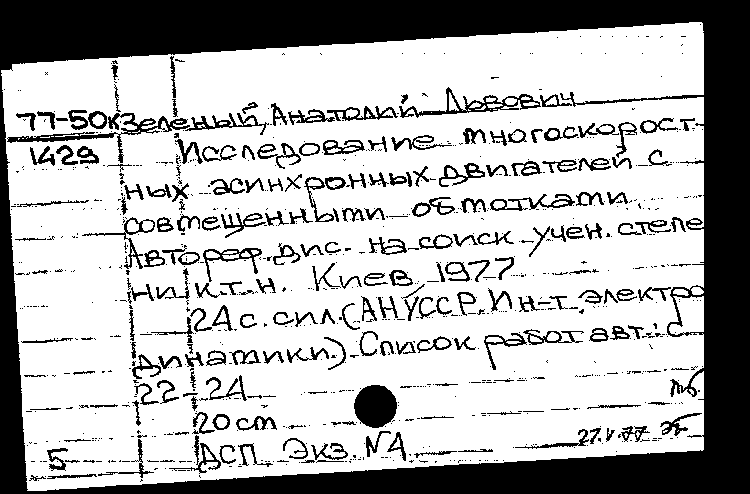 77-50к Зеленый, Анатолий Львович
1429 Исследование многоскорост-
ных асинхронных двигателей с
совмещенными обмотками.
Автореф. дис. на соиск. учен. степе
ни к.т.н. Киев, 1977
24 с. с ил. (АН УССР. Ин-т электро
динамики.) Список работ авт.: с.
22-24
20 см
27.V.77
5 ДСП. Экз. №1